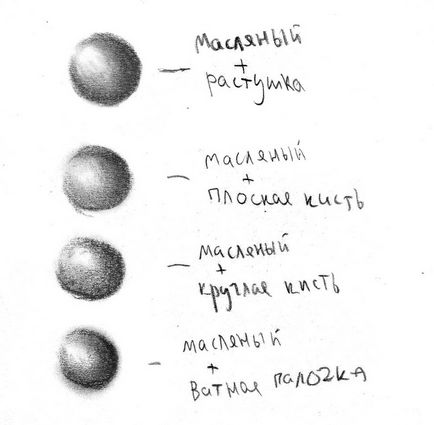 масляный
+
растушка
масляный
+
плоская кисть
масляный
+
круглая кисть
масляный
+
ватная палочка